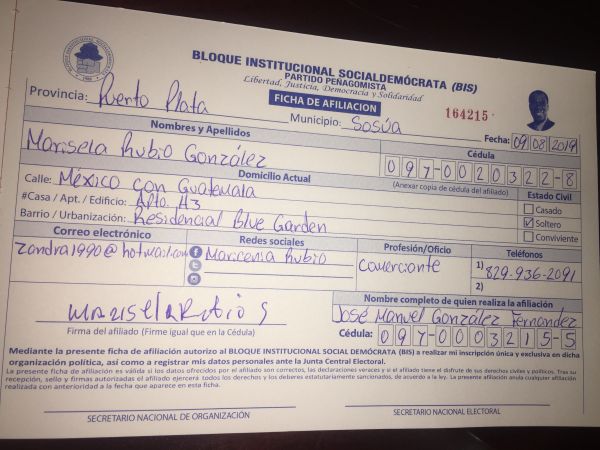 BLOQUE INSTITUCIONAL SOCIALDEMÓCRATA (BIS)
PARTIDO PEÑAGOMISTA
Libertad, Justicia, Democracia y Solidaridad
FICHA DE AFILIACION
164215
Provincia: Puerto Plata Municipio: Sosúa Fecha: 09/08/2019
Nombres y Apellidos Cédula
Marisela Rubio González 097-0020322-8
Domicilio Actual (Anexar copia de cédula del afiliado) Estado Civil
Calle: México con Guatemala Casado
#Casa / Apt. / Edificio: Apto. H3 Soltero
Barrio / Urbanización: Residencial Blue Garden Conviviente
Correo electrónico Redes sociales Profesión/Oficio Teléfonos
zondra1990@hotmail.com Maricenia Rubio Comerciante 1) 829-936-2091
2)
Marisela Rubio G
Firma del afiliado (Firme igual que en la Cédula)
Nombre completo de quien realiza la afiliación
José Manuel González Fernandez
Cédula: 097-0003215-5
Mediante la presente ficha de afiliación autorizo al BLOQUE INSTITUCIONAL SOCIAL DEMÓCRATA (BIS) a realizar mi inscripción única y exclusiva en dicha
organización política, así como a registrar mis datos personales ante la Junta Central Electoral.
La presente ficha de afiliación es válida si los datos ofrecidos por el afiliado son correctos, las declaraciones veraces y si el afiliado tiene el disfrute de sus derechos civiles y políticos. Tras su
recepción, sello y firmas autorizadas el afiliado ejercerá todos los derechos y los deberes estatutariamente sancionados, de acuerdo a la ley. La presente afiliación anula cualquier afiliación
realizada con anterioridad a la fecha que aparece en esta ficha.
SECRETARIO NACIONAL DE ORGANIZACIÓN SECRETARIO NACIONAL ELECTORAL